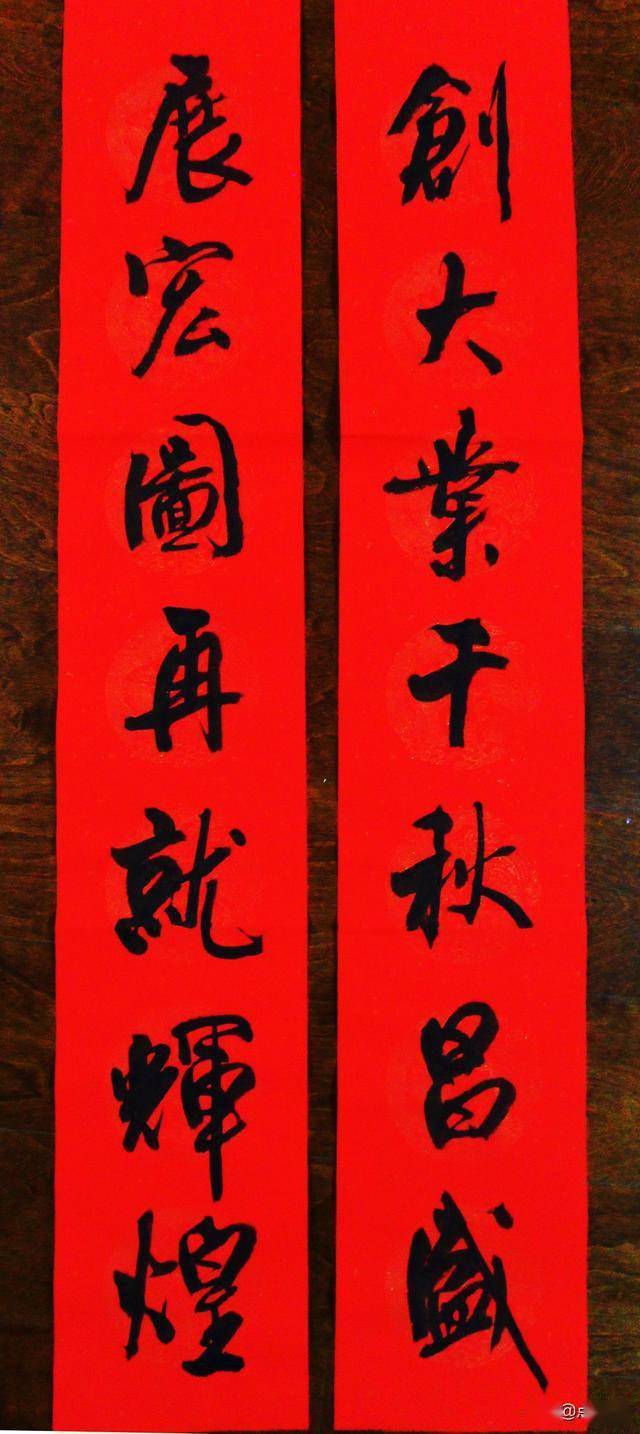 創大業千秋昌盛
展宏圖再就輝煌